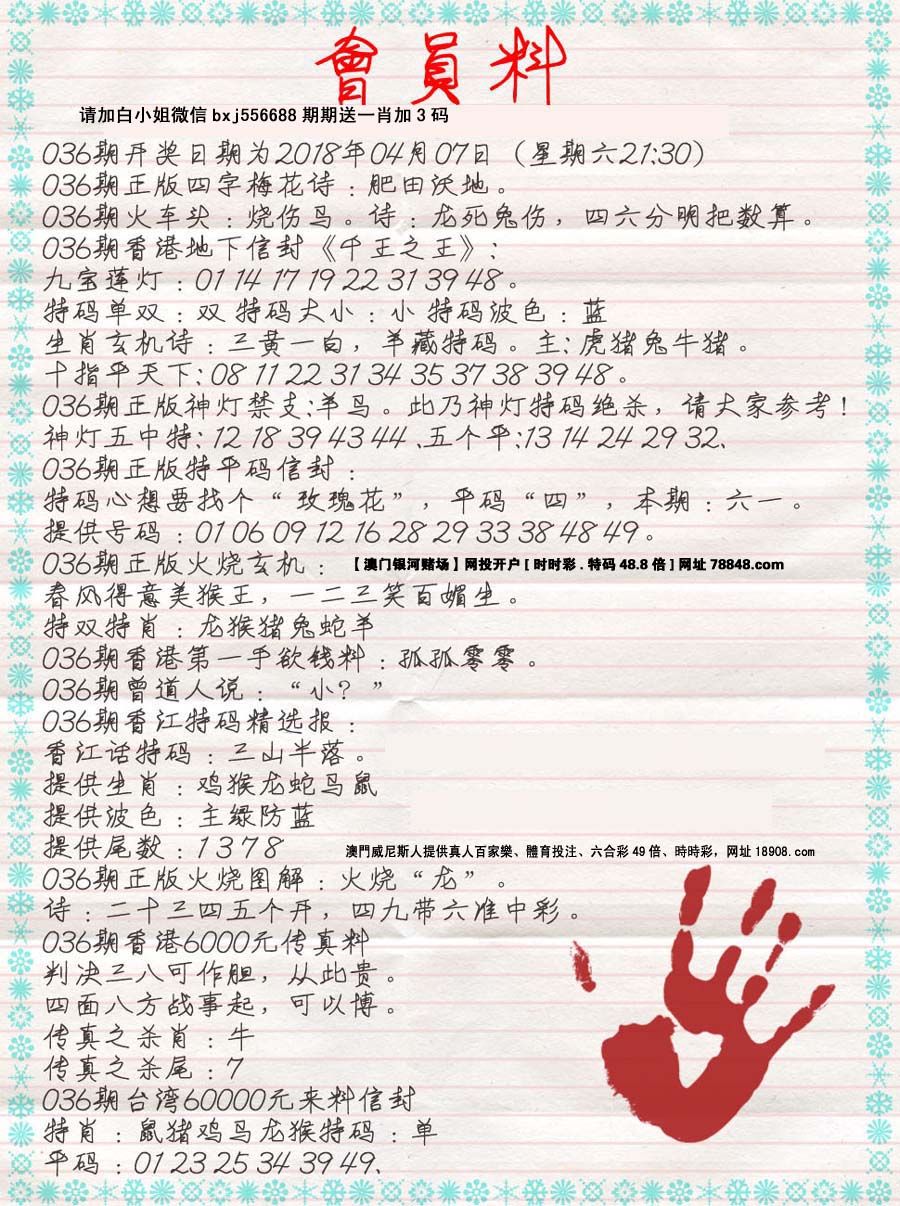 會員料
请加白小姐微信 bxj556688 期期送一肖加 3 码
036期开奖日期为2018年04月07日（星期六21:30）
036期正版四字梅花诗：肥田沃地。
036期火车头：烧伤鸟。诗：龙死兔伤，四六分明把数算。
036期香港地下信封《千王之王》：
九宝莲灯：01 14 17 19 22 31 39 48。
特码单双：双 特码大小：小 特码波色：蓝
生肖玄机诗：三黄一白，羊藏特码。主：虎猪兔牛猪。
十指平天下：08 11 22 31 34 35 37 38 39 48。
036期正版神灯禁支：羊鸟。此乃神灯特码绝杀，请大家参考！
神灯五中特：12 18 39 43 44 、五个平：13 14 24 29 32、
036期正版特平码信封：
特码心想要找个“玫瑰花”，平码“四”，本期：六一。
提供号码：01 06 09 12 16 28 29 33 38 48 49。
036期正版火烧玄机：【澳门银河赌场】网投开户 [ 时时彩 . 特码 48.8 倍 ] 网址 78848.com
春风得意美猴王，一二三笑百媚生。
特双特肖：龙猴猪兔蛇羊
036期香港第一手欲钱料：孤孤零零。
036期曾道人说：“小？”
036期香江特码精选报：
香江话特码：三山半落。
提供生肖：鸡猴龙蛇鸟鼠
提供波色：主绿防蓝
提供尾数：1 3 7 8 澳門威尼斯人提供真人百家樂、體育投注、六合彩 49 倍、時時彩，网址 18908.com
036期正版火烧图解：火烧“龙”。
诗：二十三四五个开，四九带六准中彩。
036期香港6000元传真料
判决三八可作胆，从此贵。
四面八方战事起，可以博。
传真之杀肖：牛
传真之杀尾：7
036期台湾60000元来料信封
特肖：鼠猪鸡鸟龙猴特码：单
平码：01 23 25 34 39 49、